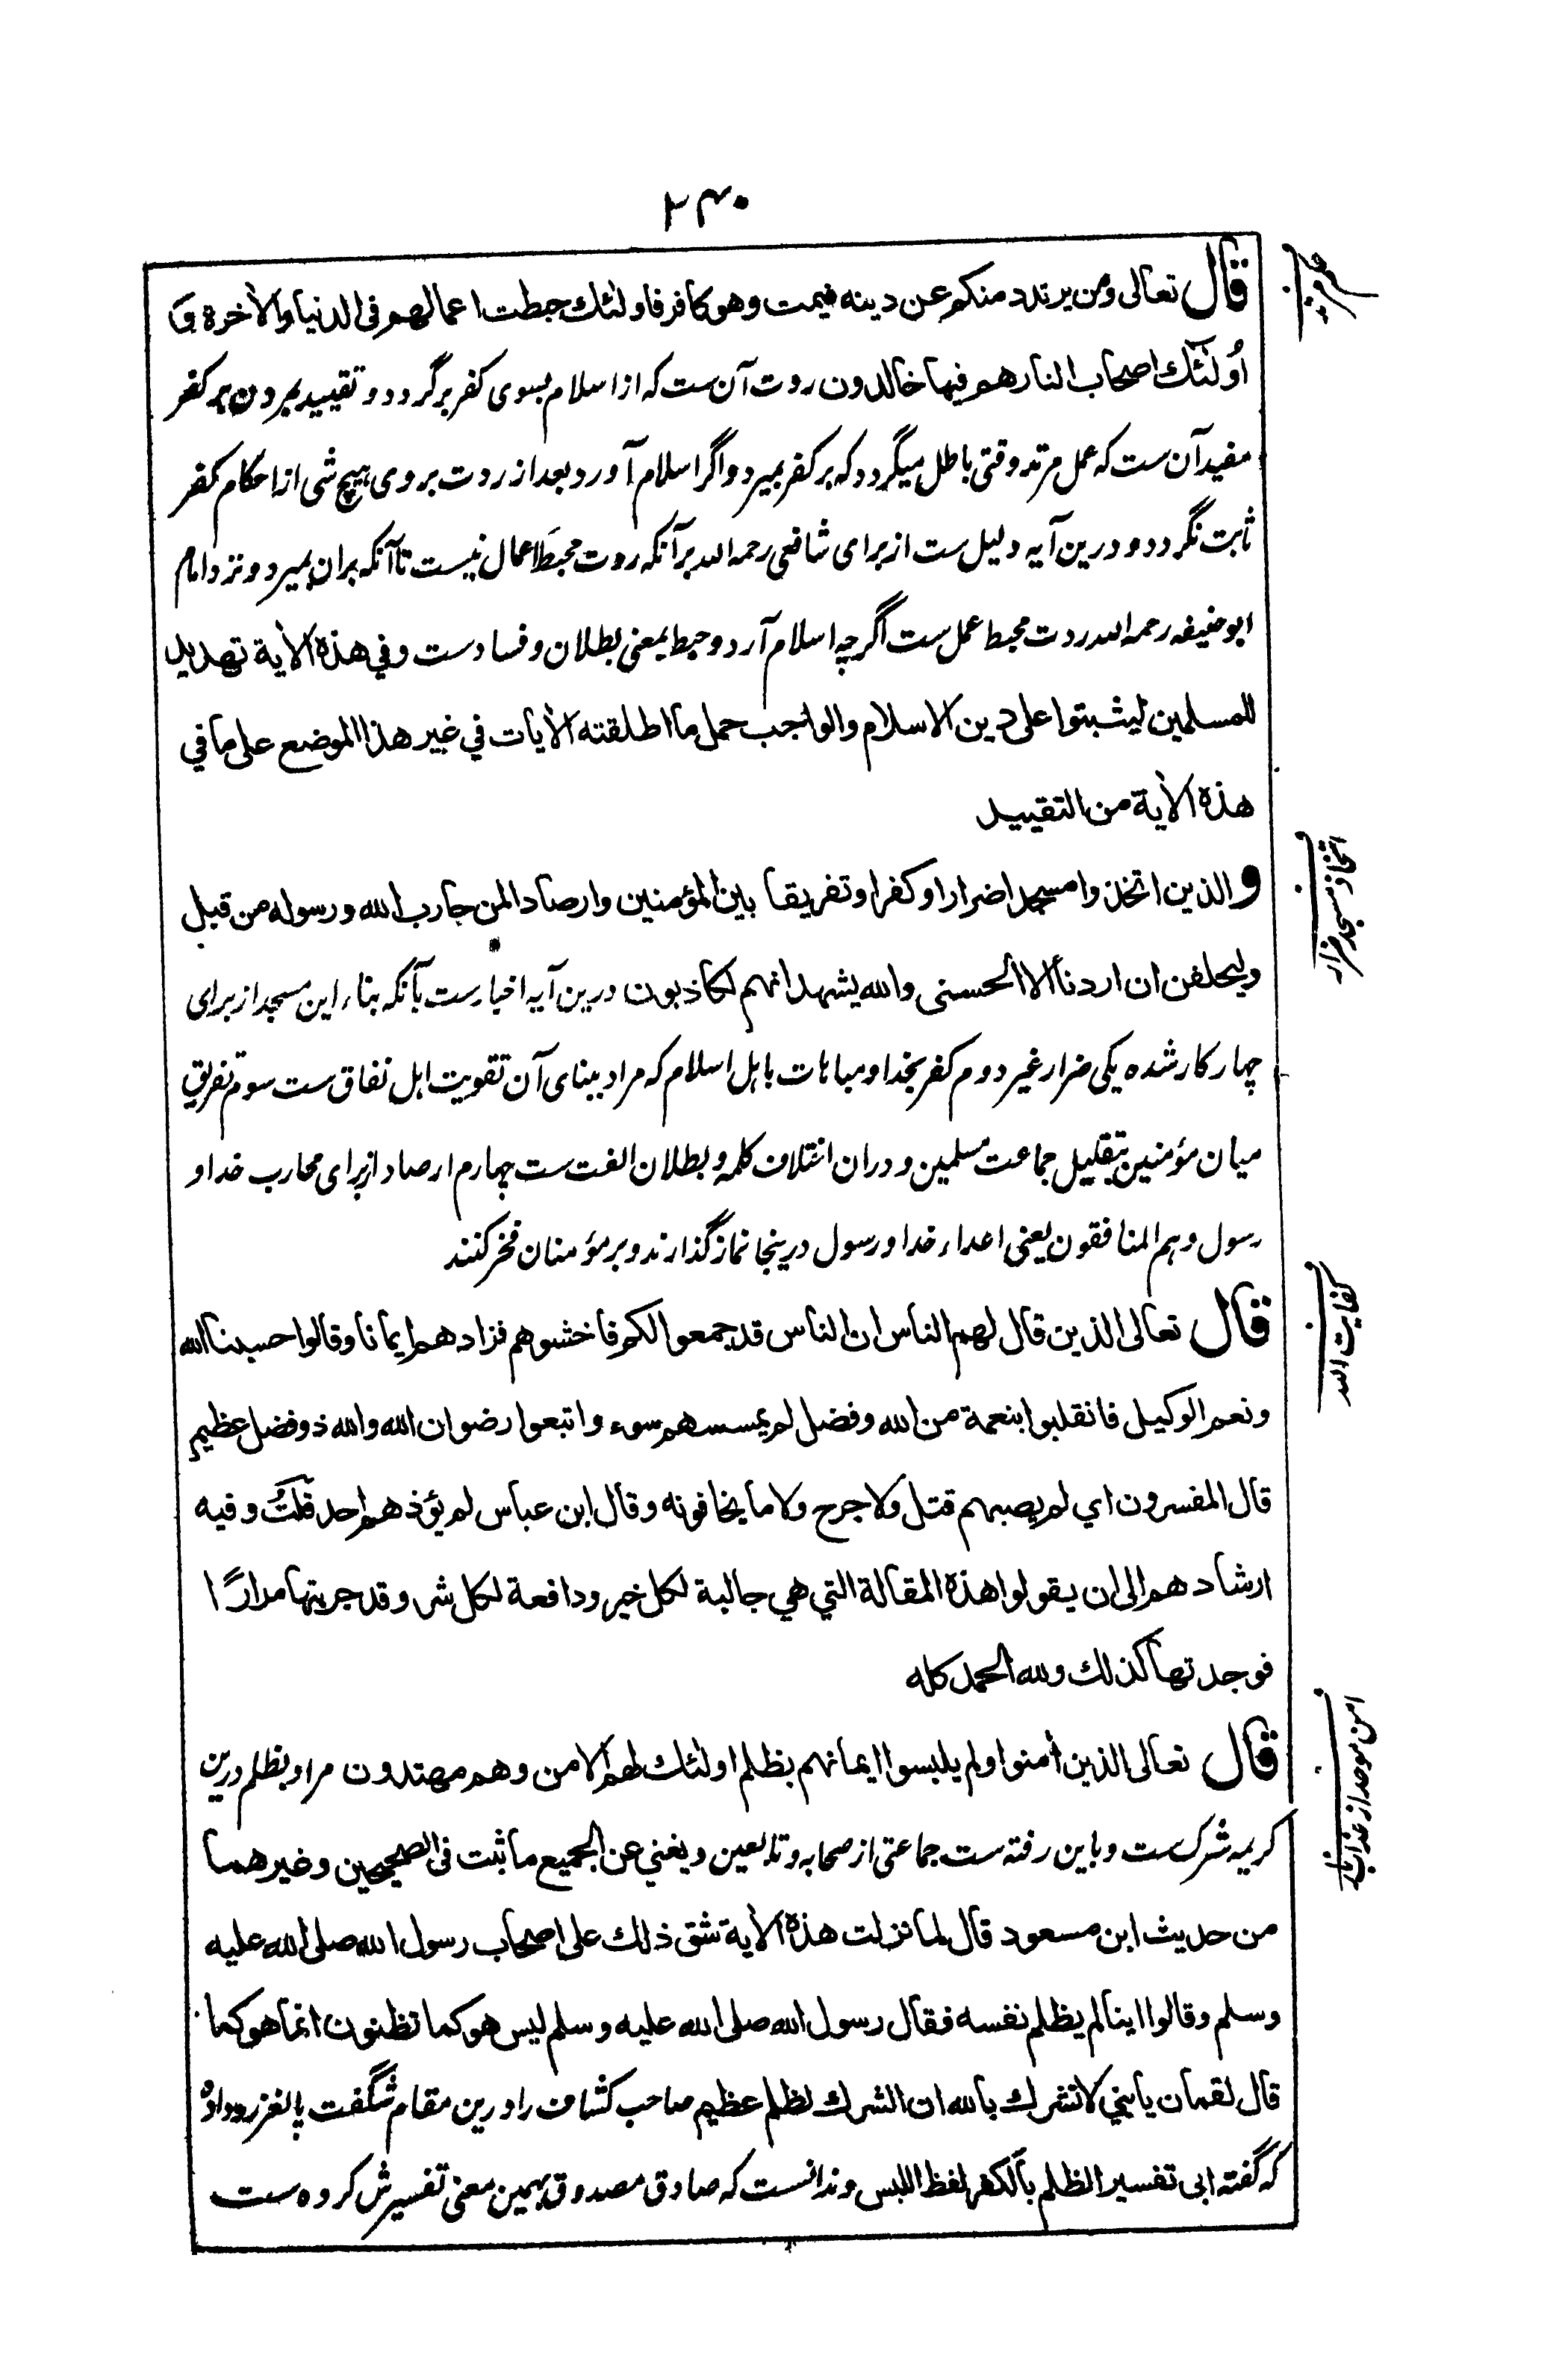 ۲۴۰
قال تعالى ومن يرتدد منكم عن دينه فيمت وهو كافر فاولئك حبطت اعمالهم فى الدنيا والاخرة و
اُولئك اصحاب النار هم فيها خالدون ردت آن ست که از اسلام بسوی کفر برگردد و تقیید بمردن بر کفر
مفید آن ست که عمل مرتد وقتی باطل میگردد که بر کفر بمیرد و اگر اسلام آورد بعد از ردت بروی هیچ شی از احکام کفر
ثابت نگردد و درین آیه دلیل ست از برای شافعی رحمه الله بر آنکه ردت محبط اعمال نیست تا آنکه بران بمیرد و نزد امام
ابوحنیفه رحمه الله ردت محبط عمل ست اگرچه اسلام آرد و حبط بمعنی بطلان و فساد ست وفي هذه الاية تهديد
للمسلمين ليثبتوا على دين الاسلام والواجب حمل ما اطلقته الايات في غير هذا الموضع على ما في
هذه الاية من التقييد
اتخاذ مسجد ضرار
والذين اتخذوا مسجدا ضرارا وكفرا وتفريقا بين المؤمنين وارصادا لمن حارب الله ورسوله من قبل
وليحلفن ان اردنا الا الحسنى والله يشهد انهم لكاذبون درین آیه اخبار ست بآنکه بناء این مسجد از برای
چهار کار شده یکی ضرار غیر دوم کفر بخدا و مباهات باهل اسلام که مراد ببنای آن تقویت اهل نفاق ست سوم تفریق
میان مؤمنین بتقلیل جماعت مسلمین و دران اختلاف کلمه و بطلان الفت ست چهارم ارصاد از برای محارب خدا و
رسول وهم المنافقون یعنی اعداء خدا و رسول درینجا نماز گذارند و بر مؤمنان فخر کنند
کفایت الله
قال تعالى الذين قال لهم الناس ان الناس قد جمعوا لكم فاخشوهم فزادهم ايمانا وقالوا حسبنا الله
ونعم الوكيل فانقلبوا بنعمة من الله وفضل لم يمسسهم سوء واتبعوا رضوان الله والله ذو فضل عظيم
قال المفسرون اي لم يصبهم قتل ولا جرح ولا ما يخافونه وقال ابن عباس لم يؤذهم احد قلتُ وفيه
ارشادهم الى ان يقولوا هذه المقالة التي هي جالبة لكل خير ودافعة لكل شر وقد جربتها مرارًا
فوجدتها كذلك ولله الحمد كله
امن موحد از عذاب
قال تعالى الذين أمنوا ولم يلبسوا ايمانهم بظلم اولئك لهم الامن وهم مهتدون مراد بظلم درین
کریمه شرک ست و باین رفته ست جماعتی از صحابه و تابعین ويغني عن الجميع ما ثبت فى الصحيحين وغيرهما
من حديث ابن مسعود قال لما نزلت هذه الاية شق ذلك على اصحاب رسول الله صلى الله عليه
وسلم وقالوا اينا لم يظلم نفسه فقال رسول الله صلى الله عليه وسلم ليس هو كما تظنون انما هو كما
قال لقمان يا بني لا تشرك بالله ان الشرك لظلم عظيم صاحب کشاف را درین مقام شگفت پالغز روداده
که گفته ابى تفسير الظلم بالكفر لفظ اللبس و ندانست که صادق مصدوق بهمین معنی تفسیرش کرده ست